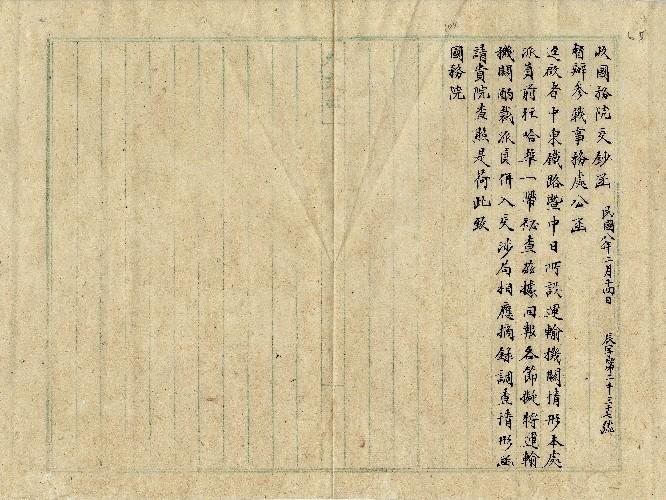 65
政國務院交鈔函　民國八年二月十四日　長字第二千三十七號
督辦參戰事務處公函
逕啟者中東鐵路暨中日所設運輸機關情形本處
派員前往哈華一帶秘查茲據回報各節擬將運輸
機關酌裁派員併入交涉局相應摘錄調查情形函
請貴院查照是荷此致
國務院